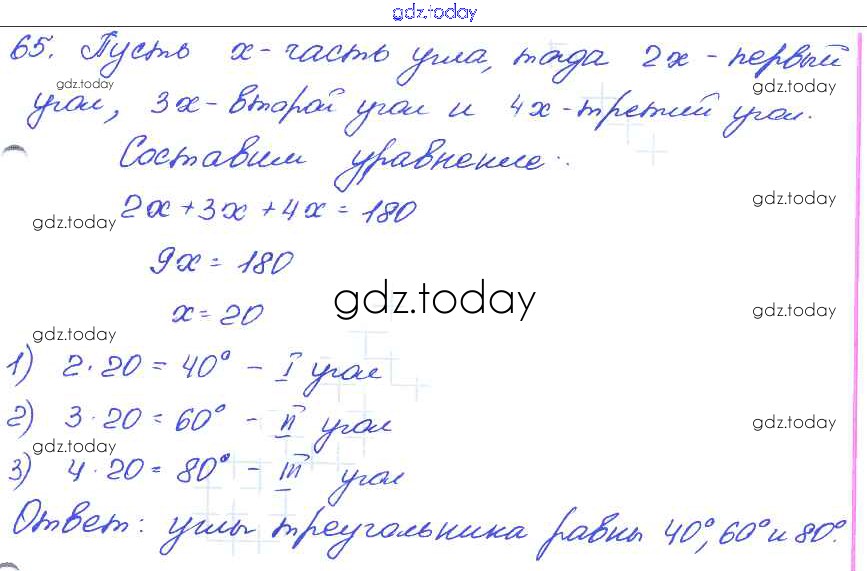 gdz.today
65. Пусть x - часть угла, тогда 2x - первый
gdz.today gdz.today
угол, 3x - второй угол и 4x - третий угол.
Составим уравнение:
2x + 3x + 4x = 180
gdz.today gdz.today
9x = 180
gdz.today
x = 20
gdz.today gdz.today
1) 2 · 20 = 40° - I угол
2) 3 · 20 = 60° - II угол
gdz.today gdz.today
3) 4 · 20 = 80° - III угол
Ответ: углы треугольника равны 40°, 60° и 80°.